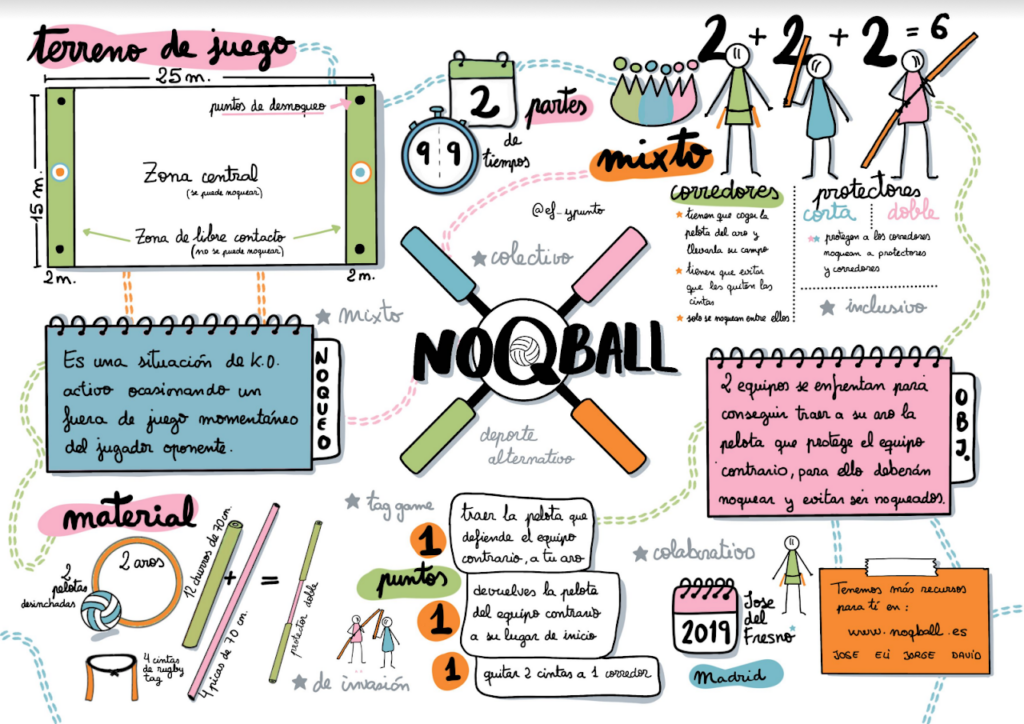 terreno de juego
25 m.
15 m.
puntos de desnoqueo
Zona central
(se puede noquear)
Zona de libre contacto
(no se puede noquear)
2 m.
2 m.
2
partes
de
tiempos
9 9
2 + 2 + 2 = 6
mixto
corredores
tienen que coger la
pelota del aro y
llevarla su campo
tienen que evitar
que les quiten las
cintas
solo se noquean entre ellos
protectores
corta
doble
protegen a los corredores
noquean a protectores
y corredores
inclusivo
@ef_ypunto
colectivo
mixto
NOQBALL
deporte
alternativo
Es una situación de K.O.
activo ocasionando un
fuera de juego momentáneo
del jugador oponente.
NOQUEO
2 equipos se enfrentan para
conseguir traer a su aro la
pelota que protege el equipo
contrario, para ello deberán
noquear y evitar ser noqueados.
OBJ.
material
2 aros
2
pelotas
desinchadas
4 cintas
de rugby
tag
12 churros de 70 cm.
+
4 picas de 70 cm.
=
protector doble
tag game
de invasión
puntos
1
traer la pelota que
defiende el equipo
contrario, a tu aro
1
devuelves la pelota
del equipo contrario
a su lugar de inicio
1
quitar 2 cintas a 1 corredor
colaborativo
2019
Jose
del
Fresno
Madrid
Tenemos más recursos
para tí en:
www.noqball.es
JOSE ELI JORGE DAVID